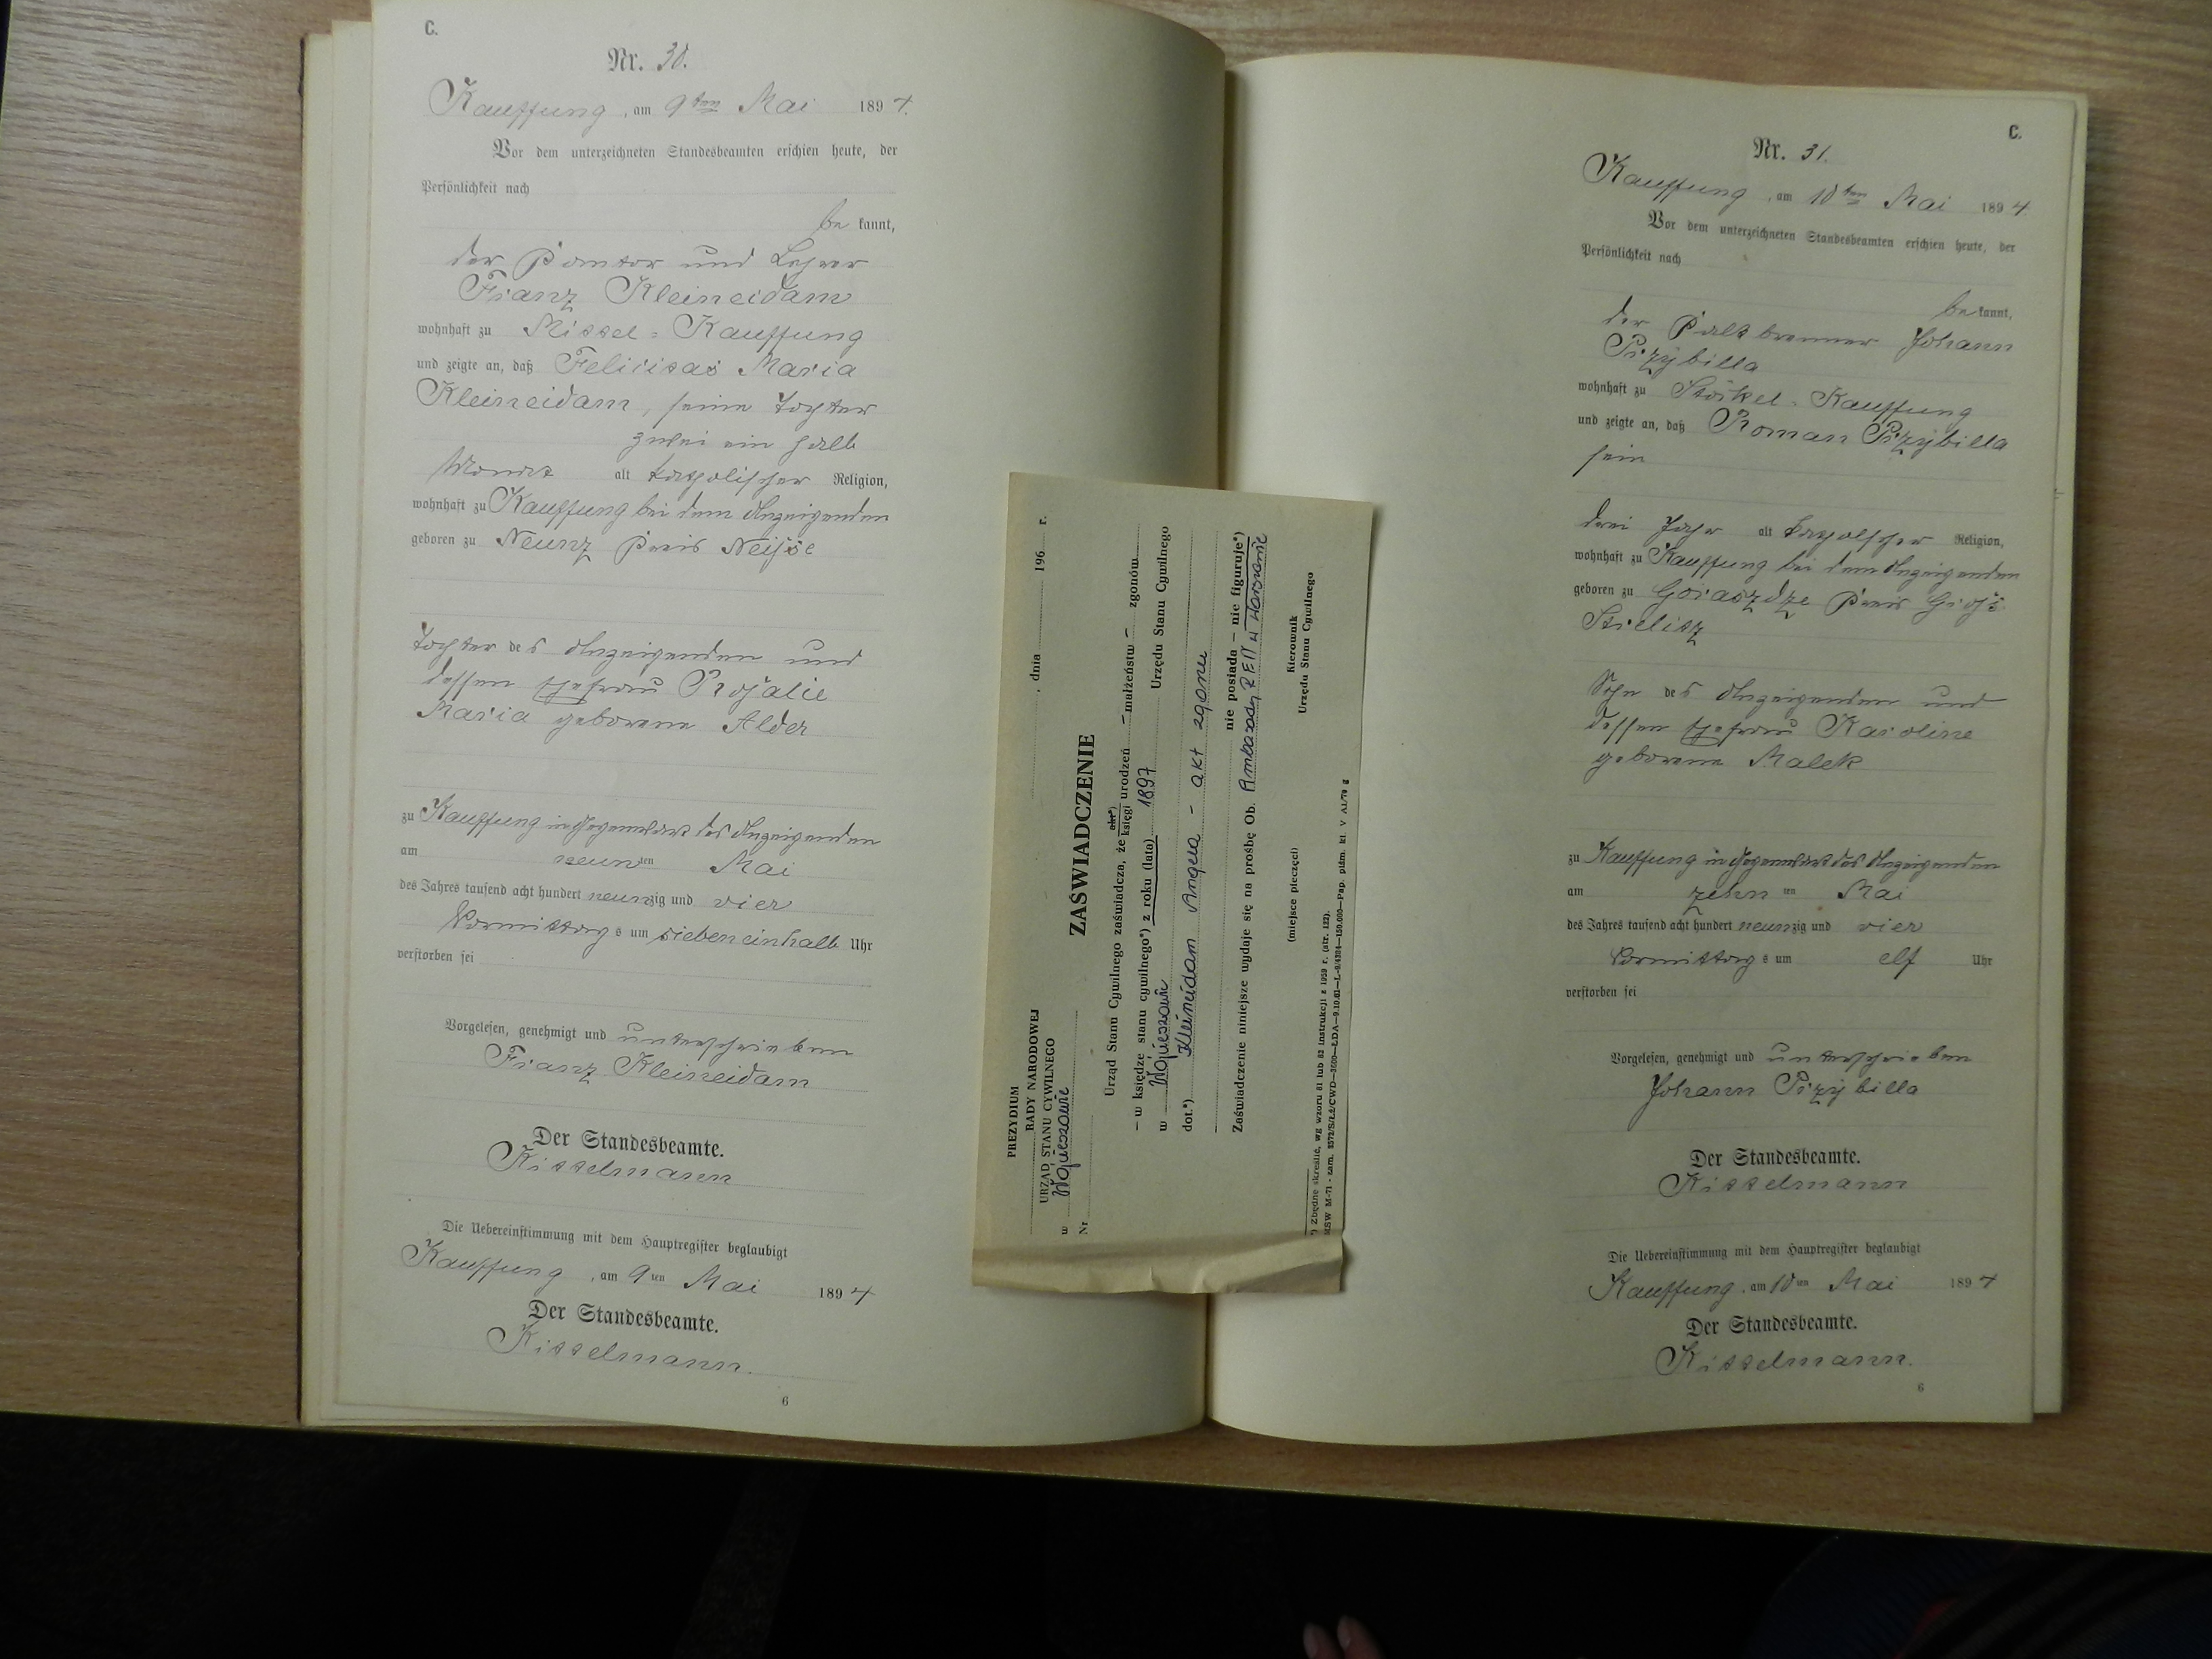 C.
Nr. 30.
Kauffung, am 9ten Mai 1894.
Vor dem unterzeichneten Standesbeamten erschien heute, der
Persönlichkeit nach
be kannt,
der Kantor und Lehrer
Franz Kleineidam
wohnhaft zu Kauffung
und zeigte an, daß Felicitas Maria
Kleineidam, seine Tochter
zwei ein halb
Monat alt katholischer Religion,
wohnhaft zu Kauffung bei dem Anzeigenden
geboren zu Neunz Kreis Neisse
Tochter des Anzeigenden und
dessen Ehefrau Rosalie
Maria geborene Alder
zu Kauffung in Gegenwart des Anzeigenden
am neunten Mai
des Jahres tausend acht hundert neunzig und vier
Vormittags um siebeneinhalb Uhr
verstorben sei
Vorgelesen, genehmigt und unterschrieben
Franz Kleineidam
Der Standesbeamte.
Kisselmann
Die Uebereinstimmung mit dem Hauptregister beglaubigt
Kauffung, am 9ten Mai 1894
Der Standesbeamte.
Kisselmann.
6
PREZYDIUM
RADY NARODOWEJ
URZĄD STANU CYWILNEGO
w Wojcieszowie
Nr
, dnia 196 r.
ZAŚWIADCZENIE
Urząd Stanu Cywilnego zaświadcza, że akt*) księgi urodzeń – małżeństw – zgonów
– w księdze stanu cywilnego*) z roku (lata) 1897 Urzędu Stanu Cywilnego
w Wojcieszowie
dot.*) Kleineidam Angela - akt zgonu
nie posiada – nie figuruje*)
Zaświadczenie niniejsze wydaje się na prośbę Ob. Ambasady RFN w Warszawie
(miejsce pieczęci)
Kierownik
Urzędu Stanu Cywilnego
*) Zbędne skreślić, wg wzoru 81 lub 82 instrukcji z 1959 r. (str. 122).
C.
Nr. 31.
Kauffung, am 10ten Mai 1894
Vor dem unterzeichneten Standesbeamten erschien heute, der
Persönlichkeit nach
be kannt,
der Kalkbrenner Johann
Przybilla
wohnhaft zu Stöckel-Kauffung
und zeigte an, daß Roman Przybilla
sein
drei Jahr alt katholischer Religion,
wohnhaft zu Kauffung bei dem Anzeigenden
geboren zu Goraszdze Kreis Groß
Strelitz
Sohn des Anzeigenden und
dessen Ehefrau Karoline
geborene Malek
zu Kauffung in Gegenwart des Anzeigenden
am zehnten Mai
des Jahres tausend acht hundert neunzig und vier
Vormittags um elf Uhr
verstorben sei
Vorgelesen, genehmigt und unterschrieben
Johann Przybilla
Der Standesbeamte.
Kisselmann
Die Uebereinstimmung mit dem Hauptregister beglaubigt
Kauffung, am 10ten Mai 1894
Der Standesbeamte.
Kisselmann.
6